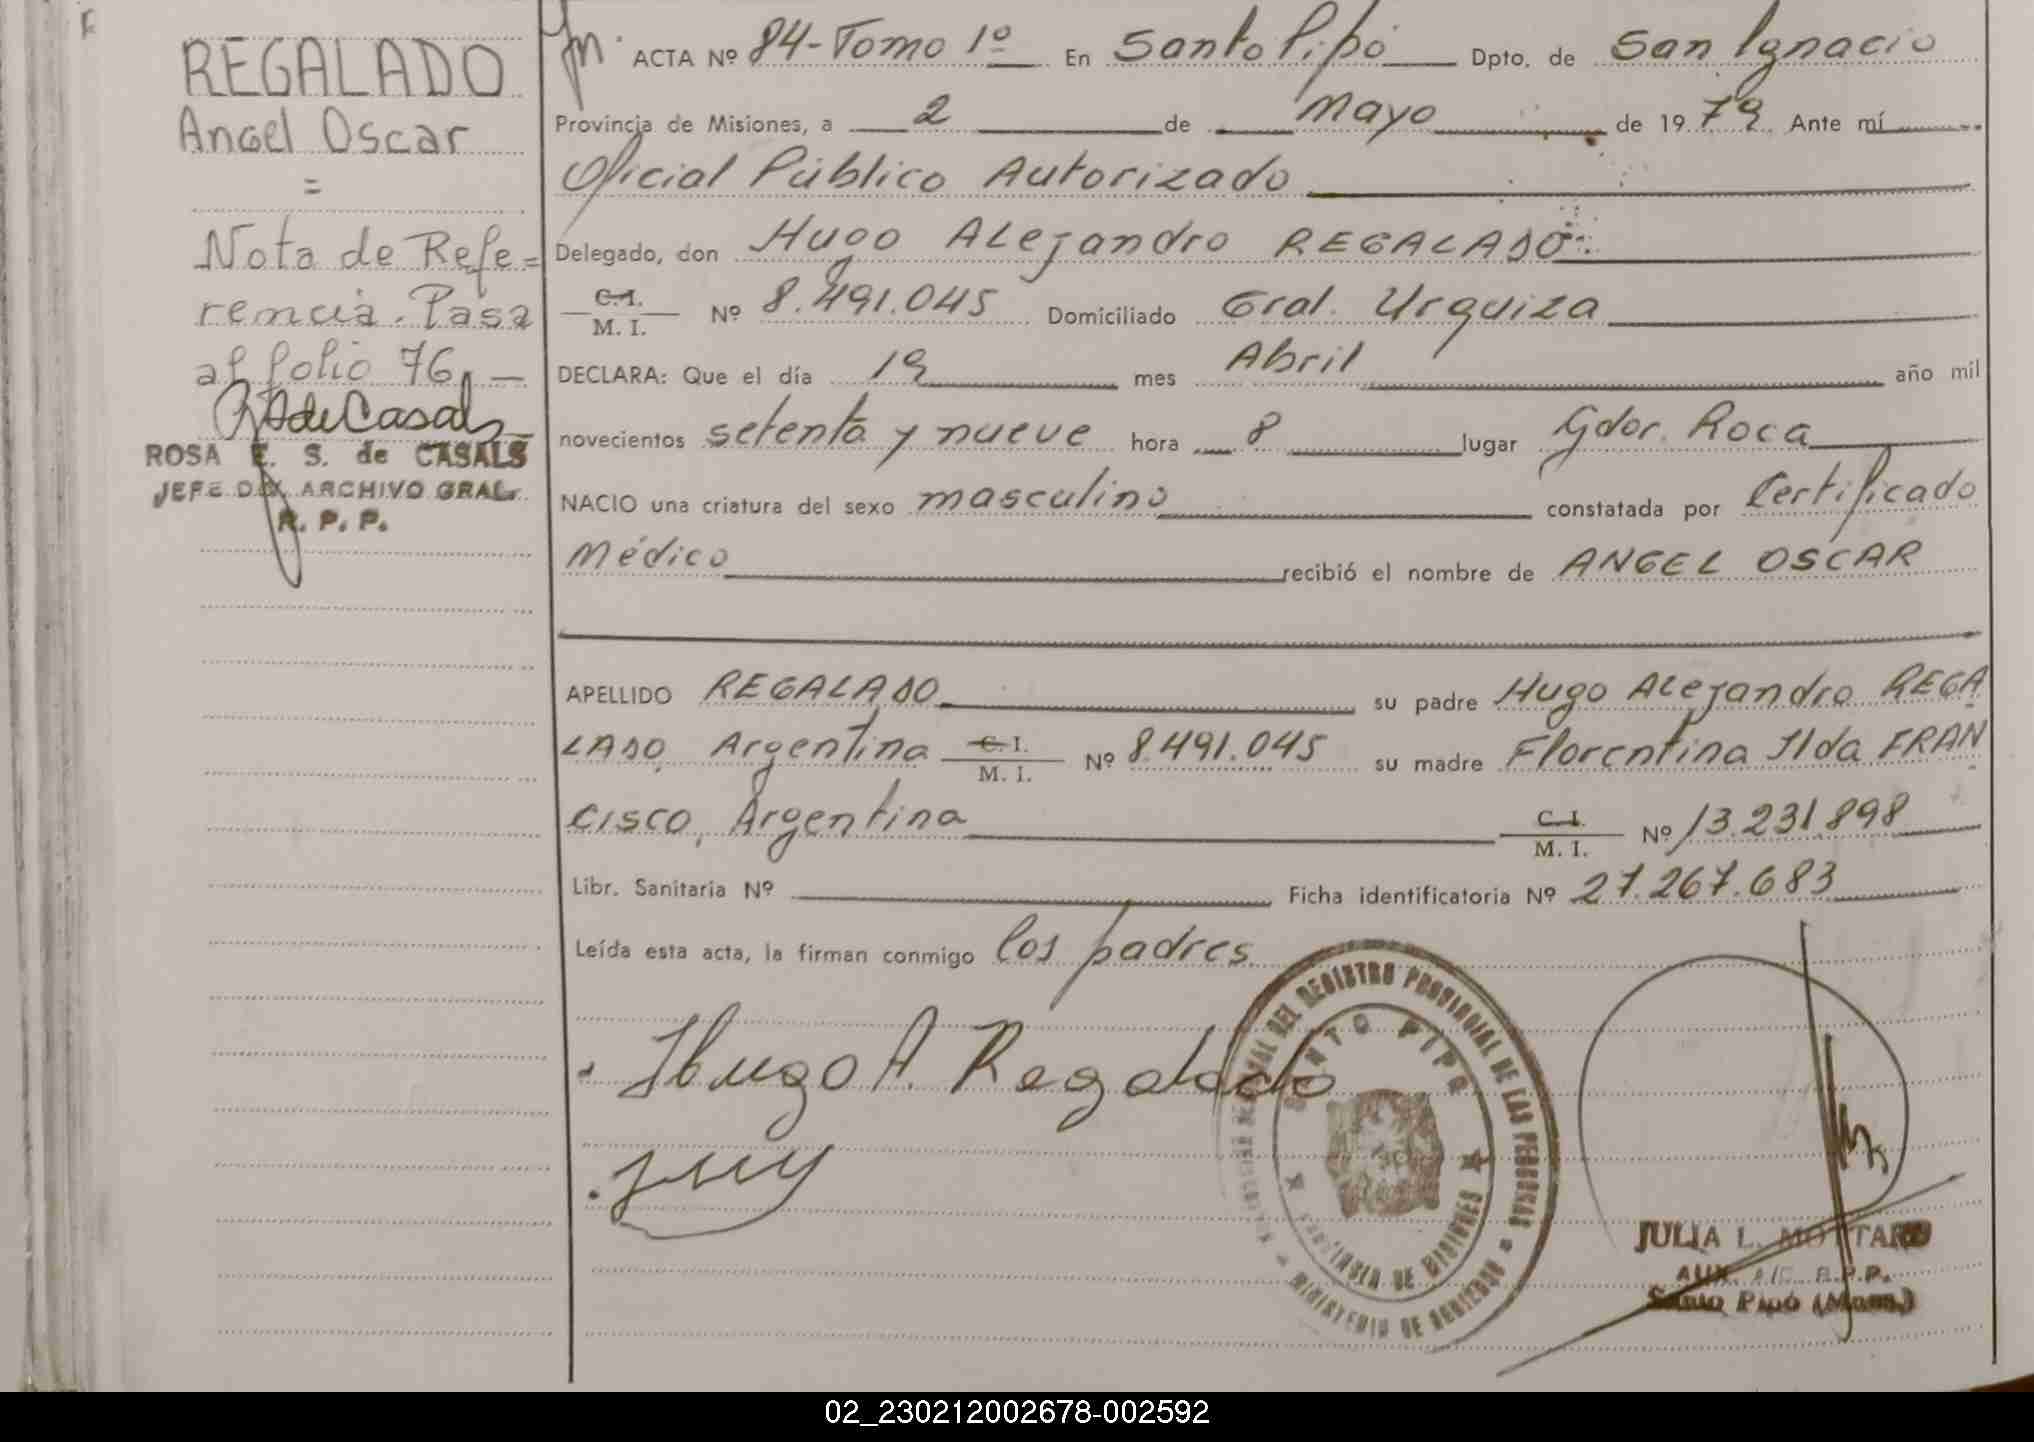 REGALADO
Angel Oscar
=
Nota de Refe=
rencia. Pasa
al folio 76.—
ROSA E. S. de CASALS
JEFE DIV. ARCHIVO GRAL.
R. P. P.
ACTA Nº 84-Tomo 1º En Santo Pipó Dpto. de San Ignacio
Provincia de Misiones, a 2 de Mayo de 1979 Ante mí
Oficial Público Autorizado
Delegado, don Hugo Alejandro REGALADO
C.I.
M. I. Nº 8.491.045 Domiciliado Gral. Urquiza
DECLARA: Que el día 19 mes Abril año mil
novecientos setenta y nueve hora 8 lugar Gdor. Roca
NACIO una criatura del sexo masculino constatada por Certificado
Médico recibió el nombre de ANGEL OSCAR
APELLIDO REGALADO su padre Hugo Alejandro REGA
LADO, Argentina C.I. M. I. Nº 8.491.045 su madre Florentina Ilda FRAN
CISCO, Argentina C.I. M. I. Nº 13.231.898
Libr. Sanitaria Nº Ficha identificatoria Nº 27.267.683
Leída esta acta, la firman conmigo los padres
Hugo A. Regalado
GENERAL DEL REGISTRO PROVINCIAL DE LAS PERSONAS
SANTO PIPO
PROVINCIA DE MISIONES
MINISTERIO DE GOBIERNO
JULIA L. MOTTARD
AUX. A/C. R.P.P.
Santo Pipó (Mnes.)
02_230212002678-002592